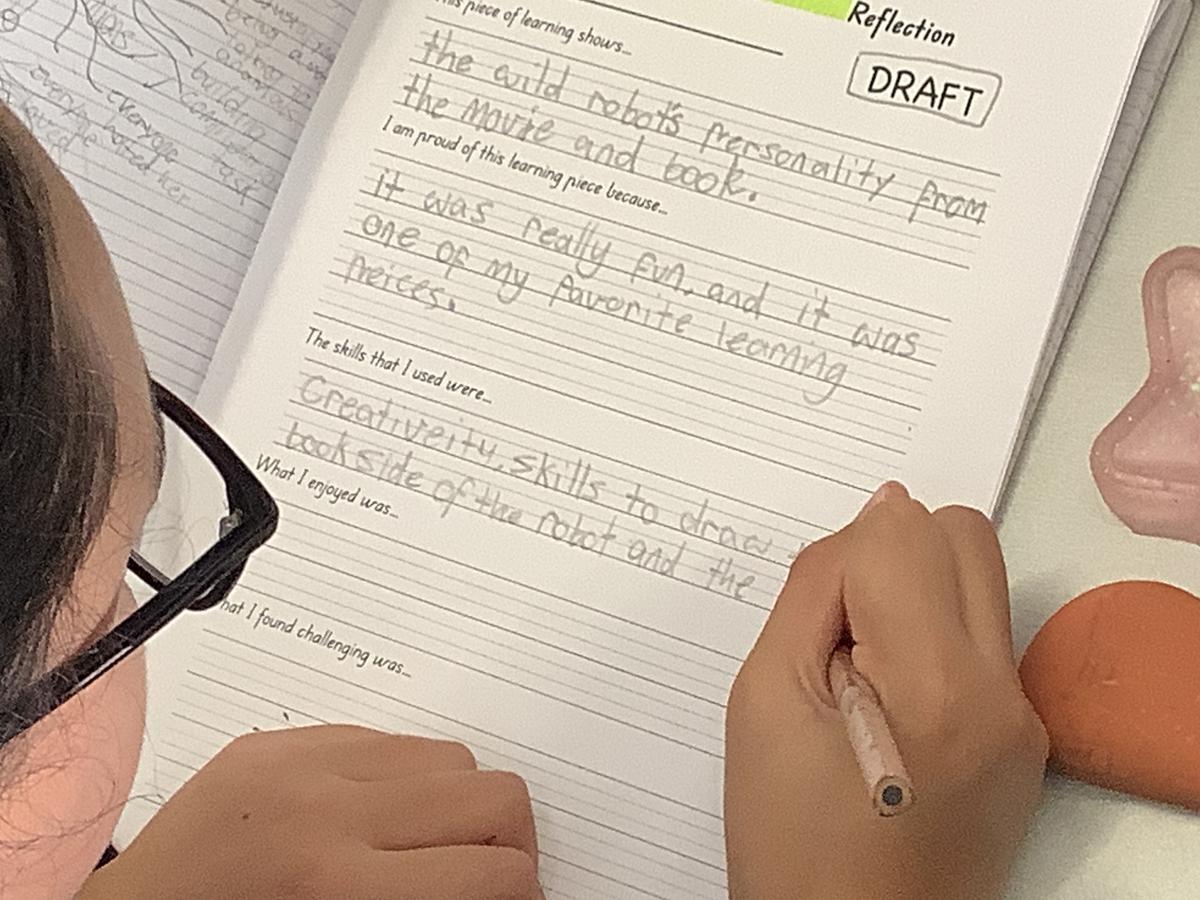 Reflection
DRAFT
his piece of learning shows...
the wild robot's prersonality from
the movie and book.
I am proud of this learning piece because...
it was really fun, and it was
one of my favorite learning
preices.
The skills that I used were...
Creativeity, skills to draw
book side of the robot and the
What I enjoyed was...
hat I found challenging was...
being a
build
everyone
task
hated her